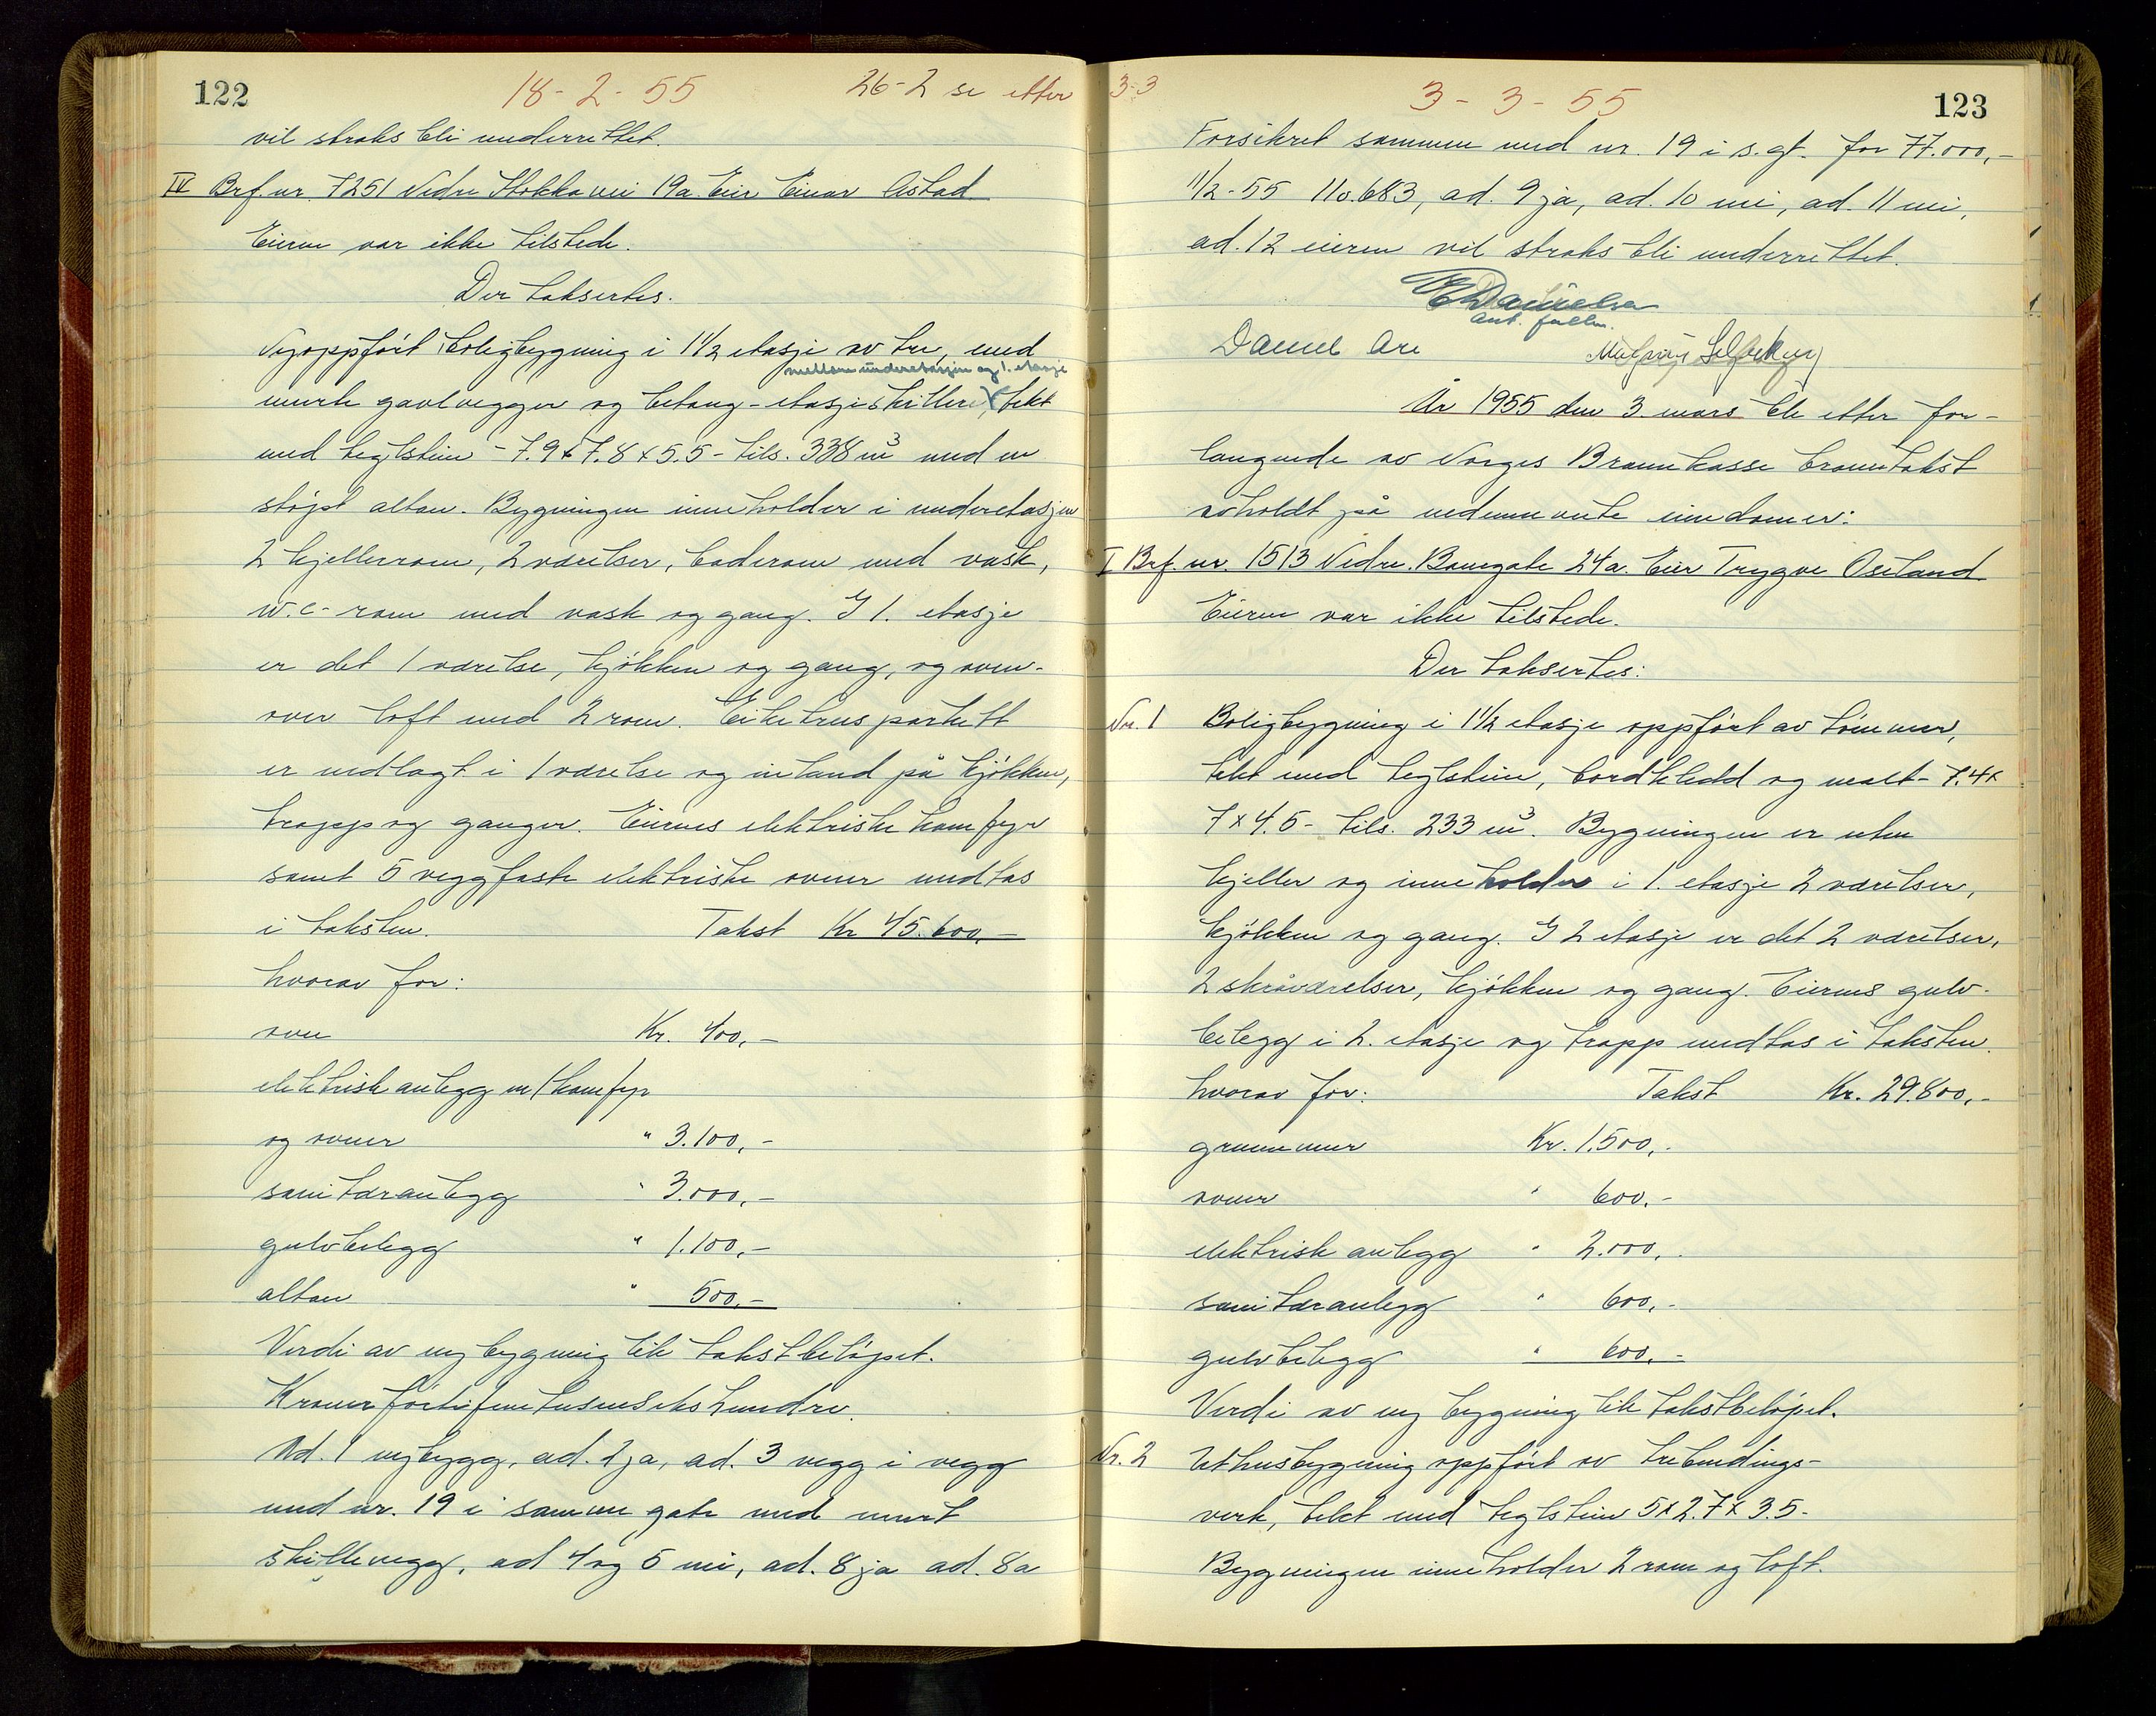 122
18-2-55
26-2 se etter 3-3
vil straks bli underrettet.
IV Brf. nr. 7251 Nedre Stokkavei 19a. Eier Einar Østad
Eieren var ikke tilstede.
Der taksertes.
Nyoppført boligbygning i 1 1/2 etasje av tre, med
mellom underetasjen og 1. etasje
murte gavlvegger og betong-etasjeskiller, tekt
med teglsten - 7.9 x 7.8 x 5.5 - tils. 338 m3 med en
støpt altan. Bygningen inneholder i underetasjen
2 kjellerrom, 2 værelser, baderom med vask,
w.c-rom med vask og gang. I 1. etasje
er det 1 værelse, kjøkken og gang, og oven-
over loft med 2 rom. Eiketres parkett
er nedlagt i 1 værelse og inlaid på kjøkken,
trapp og ganger. Eierens elektriske komfyr
samt 5 veggfaste elektriske ovner medtas
i taksten. Takst Kr 45.600,-
hvorav for:
ovn Kr. 400,-
elektrisk anlegg m/komfyr
og ovner " 3.100,-
sanitæranlegg " 3.000,-
gulvbelegg " 1.100,-
altan " 500,-
Verdi av ny bygning lik takstbeløpet.
Kroner førtifemtusensekshundre.
Ad. 1 nybygg, ad. 2 ja, ad. 3 vegg i vegg
med nr. 19 i samme gate med murt
skillevegg, ad 4 og 5 nei, ad. 8 ja ad. 8a
123
3-3-55
Forsikret sammen med nr. 19 i s. gt. for 77.000,-
11/2-55 110.683, ad. 9 ja, ad. 10 nei, ad. 11 nei,
ad. 12 eieren vil straks bli underrettet.
E Danielsen
Ant. fullm.
Daniel Are
År 1955 den 3. mars ble etter for-
langende av Norges Brannkasse branntakst
avholdt på nedennevnte eiendomer:
I Brf. nr. 1513 Nedre Banegate 24a. Eier Trygve Oseland
Eieren var ikke tilstede.
Der taksertes:
Nr. 1 Boligbygning i 1 1/2 etasje oppført av tømmer,
tekt med teglsten, bordkledd og malt - 7.4 x
7 x 4.5 - tils. 233 m3. Bygningen er uten
kjeller og inneholder i 1. etasje 2 værelser,
kjøkken og gang. I 2 etasje er det 2 værelser,
2 skråværelser, kjøkken og gang. Eierens gulv-
belegg i 2. etasje og trapp medtas i taksten.
hvorav for: Takst Kr. 29.800,-
grunnmur Kr. 1.500,-
ovner " 600,-
elektrisk anlegg " 2.000,-
sanitæranlegg " 600,-
gulvbelegg " 600,-
Verdi av ny bygning lik takstbeløpet.
Nr. 2 Uthusbygning oppført av trebindings-
verk, tekt med teglsten 5 x 2.7 x 3.5-
Bygningen inneholder 2 rom og loft.